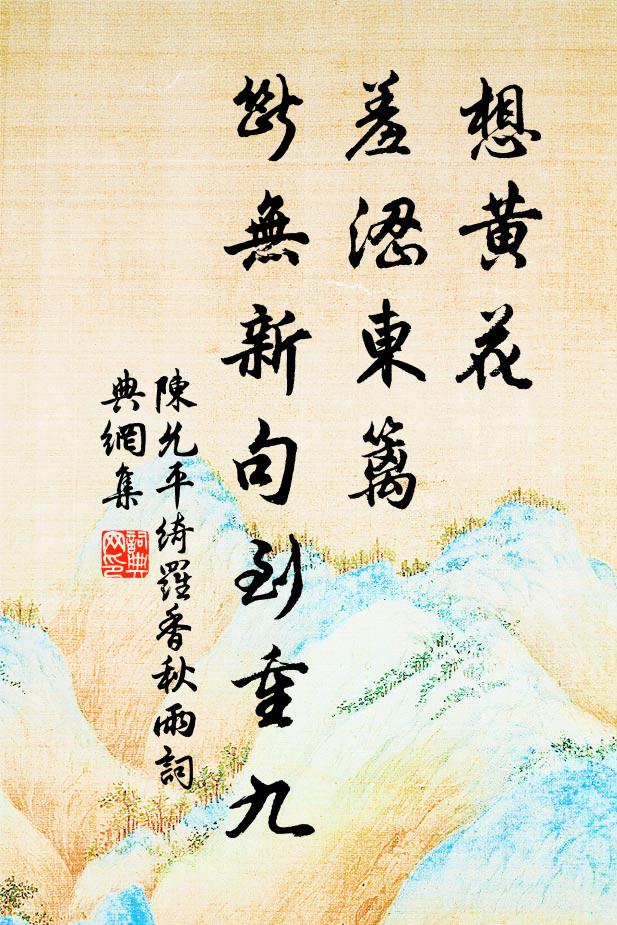 想黄花
羞澀東籬
斷無新句到重九
陳允平綺羅香秋雨詞
典網集
詞典
网印